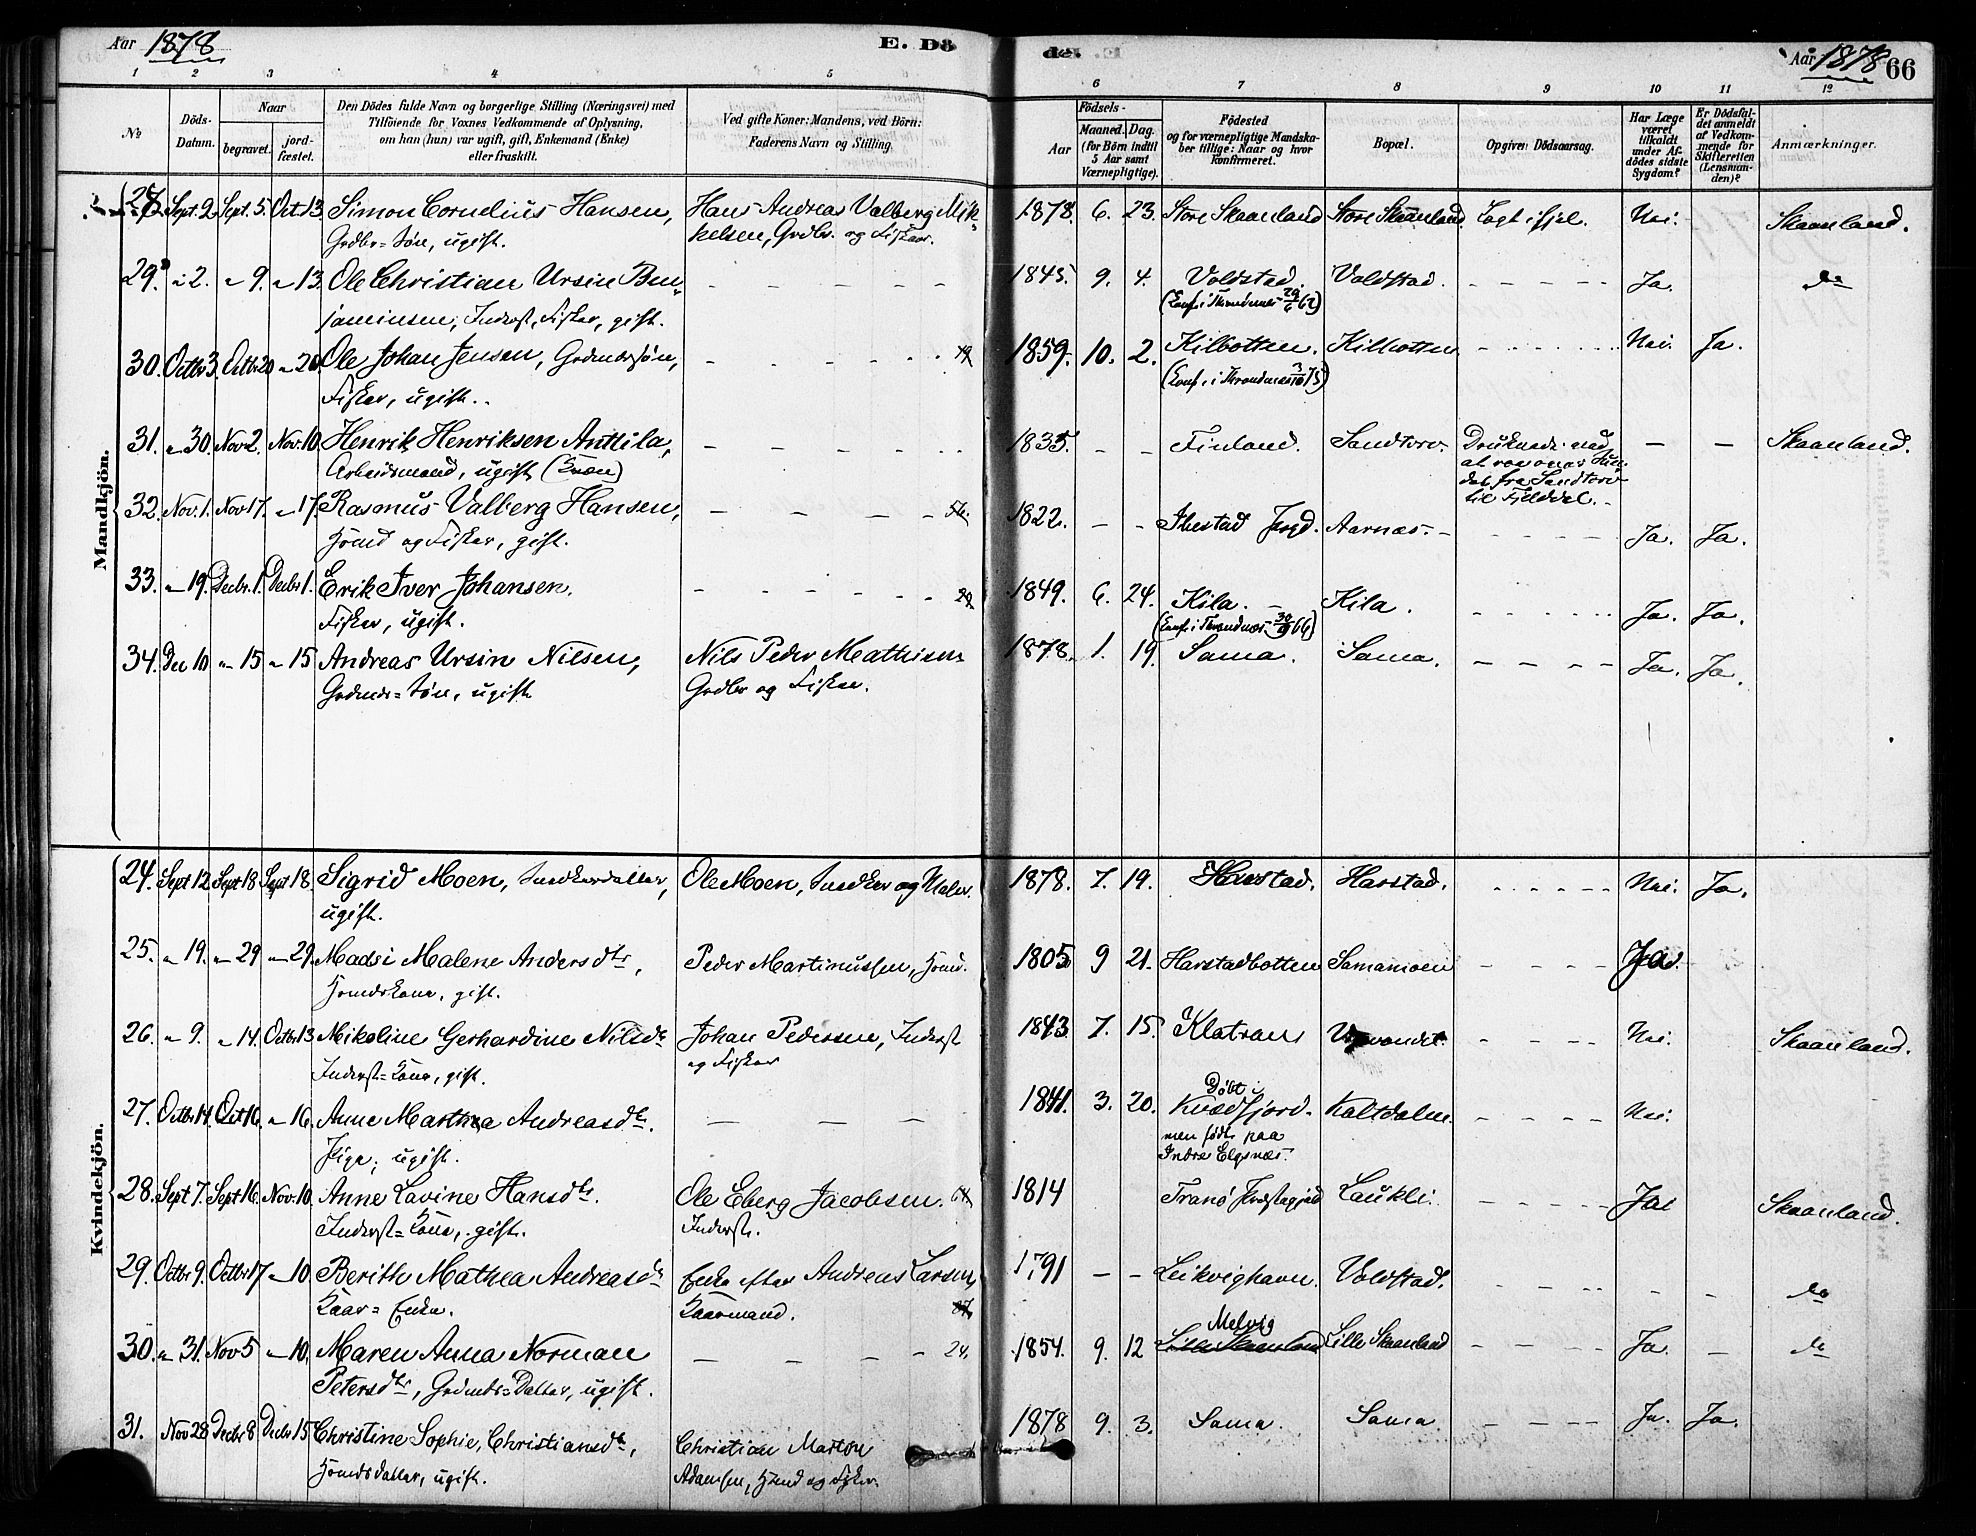 Aar 1878
E. Dö
de.
Aar 1878
66
1 2 3 4 5 6 7 8 9 10 11 12
No
Döds-Datum.
Naar
begravet.
jord-fæstet.
Den Dödes fulde Navn og borgerlige Stilling (Næringsvei) med
Tilföiende for Voxnes Vedkommende af Oplysning,
om han (hun) var ugift, gift, Enkemand (Enke)
eller fraskilt.
Ved gifte Koner: Mandens, ved Börn:
Faderens Navn og Stilling.
Födsels-
Aar
Maaned. Dag.
(for Börn indtil
5 Aar samt
Værnepligtige).
Födested
og for værnepligtige Mandska-
ber tillige: Naar og hvor
konfirmeret.
Bopæl.
Opgiven Dödsaarsag.
Har Læge
været
tilkaldt
under Af-
dödes sidste
Sygdom?
Er Dödsfal-
det anmeldt
af Vedkom-
mende for
Skifteretten
(Lensman-
den)?
Anmærkninger.
Mandkjön.
28. Sept. 2. Sept. 5. Oct. 13. Simon Cornelius Hansen, Hans Andreas Valberg Mik- 1878. 6. 23. Store Skaanland Store Skaanland Lagt ihjel. Nei. Skaanland.
Grdbr=Søn, ugift. kelsen, Grdbr. og Fisker.
29. " 2. " 9. " 13. Ole Christian Ursin Ben- 1845. 9. 4. Voldstad. Voldstad. Ja. do
jaminsen, Inderst, Fisker, gift. (Conf. i Throndenæs 29/6 62)
30. Octbr 3. Octbr 20 " 20. Ole Johan Jensen, Grdmandssøn, 19. 1859. 10. 2. Kilbotten. Kilbotten Nei. Ja.
Fisker, ugift. (Conf. i Throndenæs 3/10 75)
31. " 30. Nov. 2. Nov. 10. Henrik Henriksen Anttila, 1835. Finland. Sandtorv. Druknede ved Skaanland.
Arbeidsmand, ugift (Kvæn) at roe over Sun-
det fra Sandtorv
til Fjelddal.
32. Nov. 1. Nov 17. " 17. Rasmus Valberg Hansen, 56. 1822. Ibestad Prgd. Aarnæs. Ja. Ja.
Hmd og Fisker, gift.
33. " 19. Decbr. 1. Decbr 1. Erik Iver Johansen. 29. 1849. 6. 24. Kila. Kila. Ja. Ja.
Fisker, ugift. (Conf. i Throndnæs 30/9 66)
34. Dec 10 " 15 " 15 Andreas Ursin Nilsen, Nils Peder Mathisen 1878. 1. 19. Sama. Sama. Ja. Ja.
Grdmds=Søn, ugift Grdbr og Fisker.
Kvindekjön.
24. Sept 12 Sept 18 Sept 18. Sigrid Moen, Snedkerdatter, Ole Moen, Snedker og Maler. 1878. 7. 19. Harstad. Harstad. Nei. Ja.
ugift.
25. " 19. " 29 " 29. Madsi Malene Andersdtr, Peder Martinussen, Hmd. 1805 9 21. Harstadbotten Samamoen Ja.
Hmdskone, gift.
26. " 9. " 14. Octbr 13 Mikoline Gerhardine Nilsdtr Johan Pedersen, Inderst 1843 7. 15. Klatran Nei. Skaanland.
Inderst=Kone, gift. og Fisker
27. Octbr 14. Oct 16. " 16. Anne Marthea Andreasdtr. 1841. 3. 20. Døbt Kvædfjord. Kaltdalen. Nei.
Pige, ugift. men født paa
Indre Elgsnæs.
28. Sept 7. Sept 16. Nov. 10. Anne Lavine Hansdtr. Ole Eberg Jacobsen. 64. 1814 Tranø Præstegjeld Laukli. Ja Skaanland.
Inderst=Kone, gift. Inderst.
29. Octbr 9. Octbr 17 " 10. Berith Mathea Andreasdtr Enke efter Andreas Larsen, 1791 Leikvighavn. Voldstad. do
Kaar=Enke. Kaarmand. 87.
30. " 31. Nov 5 " 10. Maren Anna Norman 24. 1854. 9. 12 Melvig Lille Skaanland Lille Skaanland Ja. do
Petersdtr, Grdmds=Datter, ugift.
31. Nov 28 Decbr 8 Decbr 15 Christine Sophie, Christiansdtr, Christian Marton 1878 9. 3. Sama. Sama Ja. Ja.
Hmdsdatter, ugift. Adamsen, Hmd og Fisker